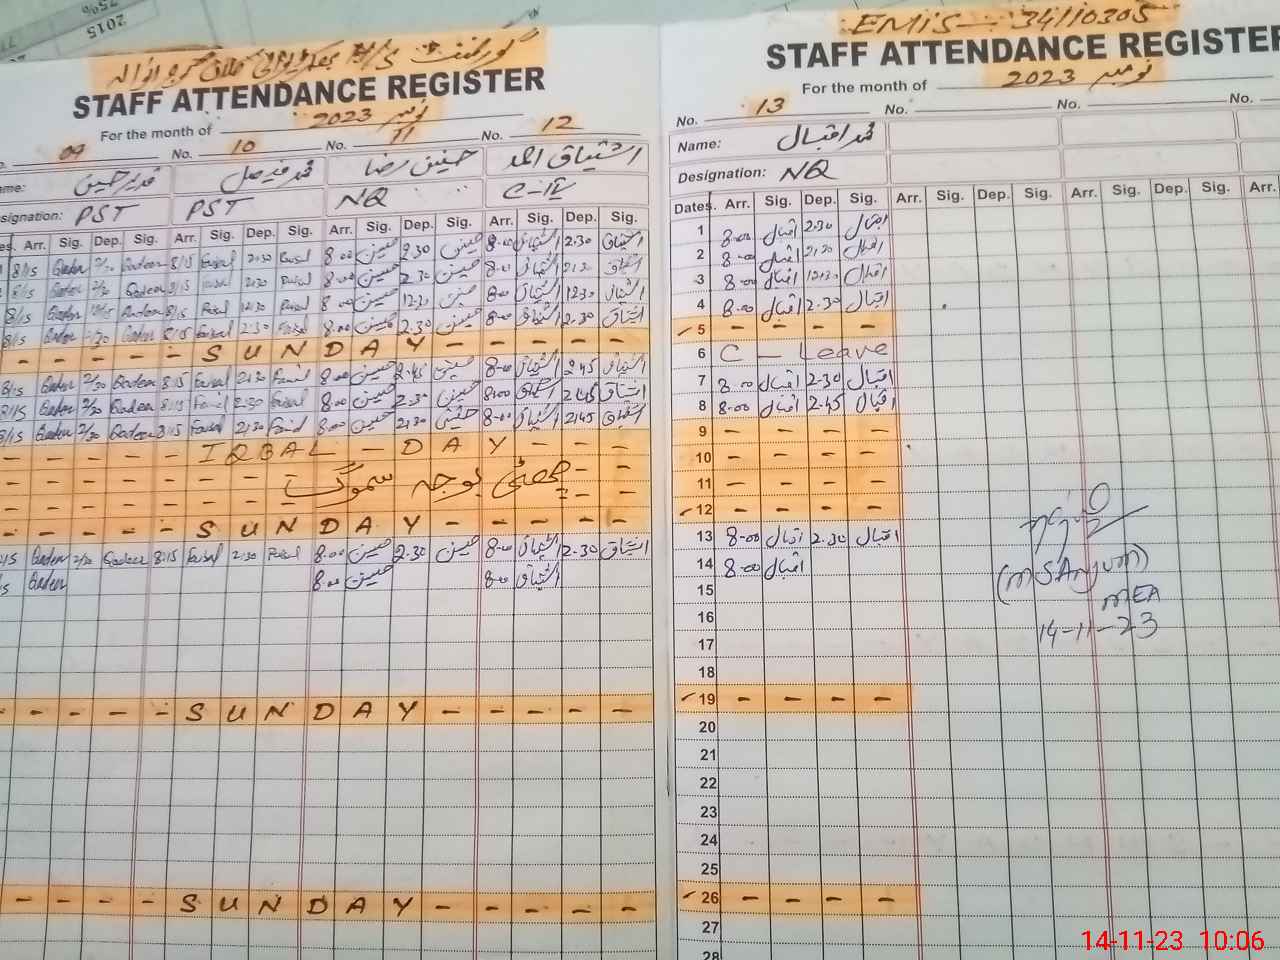 2015
75%
گورنمنٹ
STAFF ATTENDANCE REGISTER
For the month of نومبر 2023
09 No. 10 No. 11 No. 12
ame: قدیر حسین محمد فیصل حسنین رضا اشتیاق احمد
signation: PST PST NQ C-IV
es. Arr. Sig. Dep. Sig. Arr. Sig. Dep. Sig. Arr. Sig. Dep. Sig. Arr. Sig. Dep. Sig.
8/15 Qadeer 2/30 Qadeer 8/15 Faisal 2:30 Faisal 8:00 حسنین 2:30 حسنین 8:00 اشتیاق 2:30 اشتیاق
8/15 Qadeer 2/30 Qadeer 8/15 Faisal 2:30 Faisal 8:00 حسنین 2:30 حسنین 8:00 اشتیاق 2:30 اشتیاق
8/15 Qadeer Qadeer 8/15 Faisal 12:30 Faisal 8:00 حسنین 12:30 حسنین 8:00 اشتیاق 12:30 اشتیاق
8/15 Qadeer Qadeer 8/15 Faisal 2:30 Faisal 8:00 حسنین 2:30 حسنین 8:00 اشتیاق 2:30 اشتیاق
- - - - - S U N D A Y - - - - - -
8/15 Qadeer 2/30 Qadeer 8:15 Faisal 2:30 Faisal 8:00 حسنین 2:45 حسنین 8:00 اشتیاق 2:45 اشتیاق
8/15 Qadeer 2/30 Qadeer 8:15 Faisal 2:30 Faisal 8:00 حسنین 2:30 حسنین 8:00 اشتیاق 2:45 اشتیاق
8/15 Qadeer 2/30 Qadeer 8:15 Faisal 2:30 Faisal 8:00 حسنین 2:30 حسنین 8:00 اشتیاق 2:45 اشتیاق
- - - - - I Q B A L - D A Y - - -
چھٹی بوجہ سموگ
- - - - - S U N D A Y - - - - - -
Qadeer 2/30 Qadeer 8:15 Faisal 2:30 Faisal 8:00 حسنین 2:30 حسنین 8:00 اشتیاق 2:30 اشتیاق
Qadeer 8:00 حسنین 8:00 اشتیاق
- - - - - S U N D A Y - - - - - -
- - - - - S U N D A Y - - - - - -
EMIS - 34110305
STAFF ATTENDANCE REGISTER
For the month of نومبر 2023
No. 13 No. No. No.
Name: محمد اقبال
Designation: NQ
Dates. Arr. Sig. Dep. Sig. Arr. Sig. Dep. Sig. Arr. Sig. Dep. Sig. Arr.
1 8:00 اقبال 2:30 اقبال
2 8:00 اقبال 2:30 اقبال
3 8:00 اقبال 12:30 اقبال
4 8:00 اقبال 2:30 اقبال
5 - - - -
6 C - Leave
7 8:00 اقبال 2:30 اقبال
8 8:00 اقبال 2:45 اقبال
9 - - - -
10 - - - -
11 - - - -
12 - - - -
13 8:00 اقبال 2:30 اقبال
14 8:00 اقبال
15
16
17
18
19 - - - -
20
21
22
23
24
25
26 - - - -
27
28
(M S Anjum)
MEA
14-11-23
14-11-23 10:06